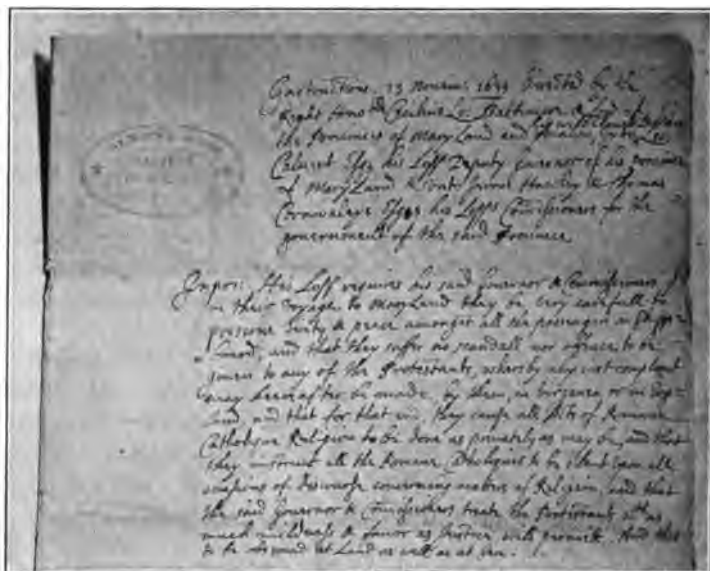 Instructions 13 Novem: 1633 directed by the
Right Hono^ble Cecilius Lo: Baltimore & Lord of
the Provinces of Mary Land and Avalon unto
Calvert Esq^r his Lo^pps Deputy Governor of his province
of Mary Land & unto Jerom Hawley & Thomas
Cornwaleys Esq^rs his Lo^pps Commissioners for the
government of the said Province
Impri: His Lo^pp requires his said Governor & Commissioners
in their voyage to Mary Land they be very carefull to
preserve unity & peace amongst all the passengers on Shipp-
board, and that they suffer no scandall nor offence to be
given to any of the Protestants, whereby any just complaint
may heereafter be made, by them, in Virginea or in Eng-
land, and that for that end, they cause all Acts of Romane
Catholique Religion to be done as privately as may be, and that
they instruct all the Romane Catholiques to be silent upon all
occasions of discourse concerning matters of Religion; and that
the said Governor & Commissioners treate the Protestants w^th as
much mildness & favor as Justice will permitt. And this
to be observed at Land as well as at Sea.